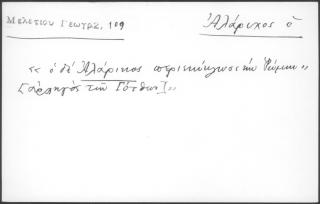 Μελετίου Γεωγρ, 109
Ἀλάριχος ὁ
« ὁ δέ Ἀλάρικος περικύκλωσε τήν Ῥώμην »
[ἀρχηγός τῶν Γότθων] »